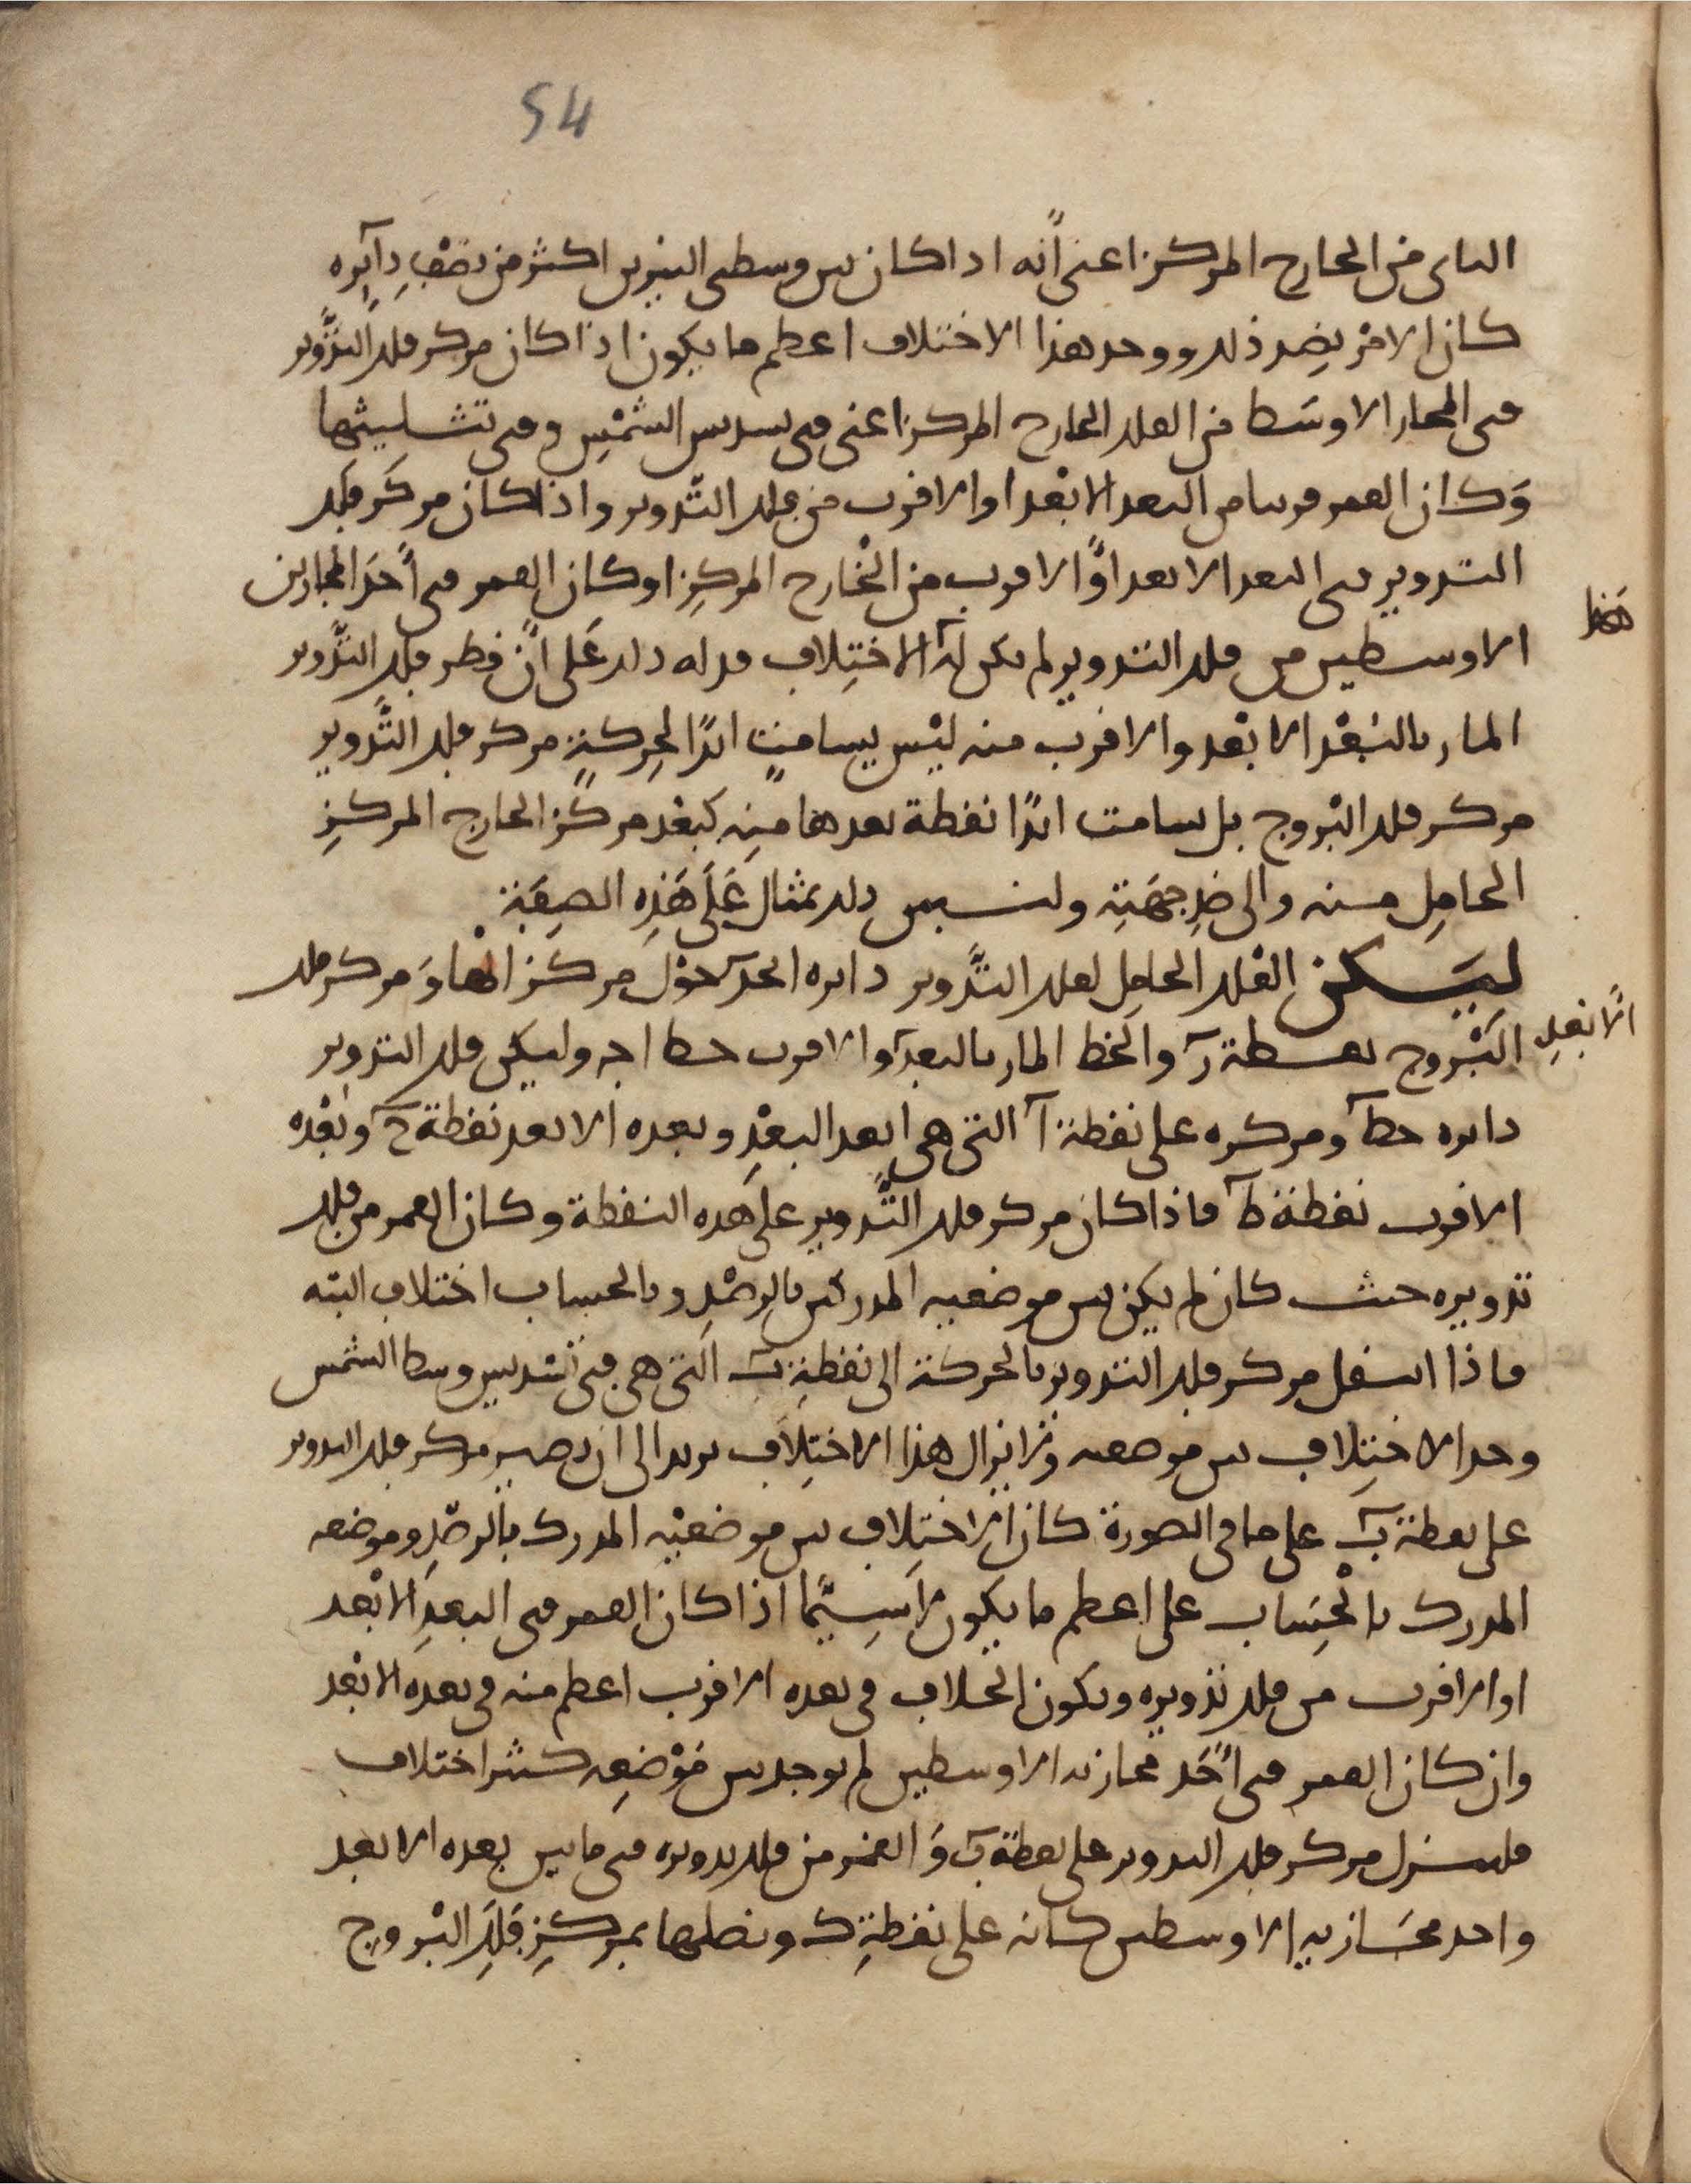 54
الباقى من الخارج المركز اعنى أنه اذا كان بين وسطى النيرين اكثر من نصف دائره
كان الامر بضد ذلك ووجد هذا الاختلاف اعظم ما يكون اذا كان مركز فلك التدوير
فى المجاز الاوسط من الفلك الخارج المركز اعنى فى تسديس الشمس وفى تثليثها
وكان القمر قريبا من البعد الابعد او الاقرب من فلك التدوير واذا كان مركز فلك
التدوير فى البعد الابعد او الاقرب من الخارج المركز او كان القمر فى أحد المجازين
هذا
الاوسطين من فلك التدوير لم يكن له الاختلاف فدله ذلك على ان قطر فلك التدوير
المار بالبعد الابعد والاقرب منه ليس يسامت ابدا لحركة مركز فلك التدوير
مركز فلك البروج بل يسامت ابدا نقطة بعدها منه كبعد مركز الخارج المركز
الحامل منه والى ضد جهته ولنبين ذلك بمثال على هذه الصفة
ليكن الفلك الحامل لفلك التدوير دائره ابجد حول مركز ها و مركز فلك
البروج نقطة ز والخط المار بالبعد والاقرب خط اجه وليكن فلك التدوير
الابعد
دائره حط ومركزه على نقطة آ التى هى ابعد البعد وبعده الابعد نقطة ح وبعده
الاقرب نقطة ط فاذا كان مركز فلك التدوير على هذه النقطة وكان القمر من فلك
تدويره حيث كان لم يكن بين موضعيه المدركين بالرصد وبالحساب اختلاف البته
فاذا انتقل مركز فلك التدوير بالحركة الى نقطة ب التى هى فى تسديس وسط الشمس
وجد الاختلاف بين موضعيه ولا يزال هذا الاختلاف يزيد الى ان يصير مركز فلك التدوير
على نقطة ب على ما فى الصورة كان الاختلاف بين موضعيه المدرك بالرصد وموضعه
المدرك بالحساب على اعظم ما يكون لا سيما اذا كان القمر فى البعد الابعد
او الاقرب من فلك تدويره ويكون الخلاف فى بعده الاقرب اعظم منه فى بعده الابعد
وان كان القمر فى أحد مجازيه الاوسطين لم يوجد بين موضعيه كثير اختلاف
فلننزل مركز فلك التدوير على نقطة ب و القمر من فلك تدويره فى ما بين بعده الابعد
واحد مجازيه الاوسطين كانه على نقطة ك ونصلها بمركز فلك البروج